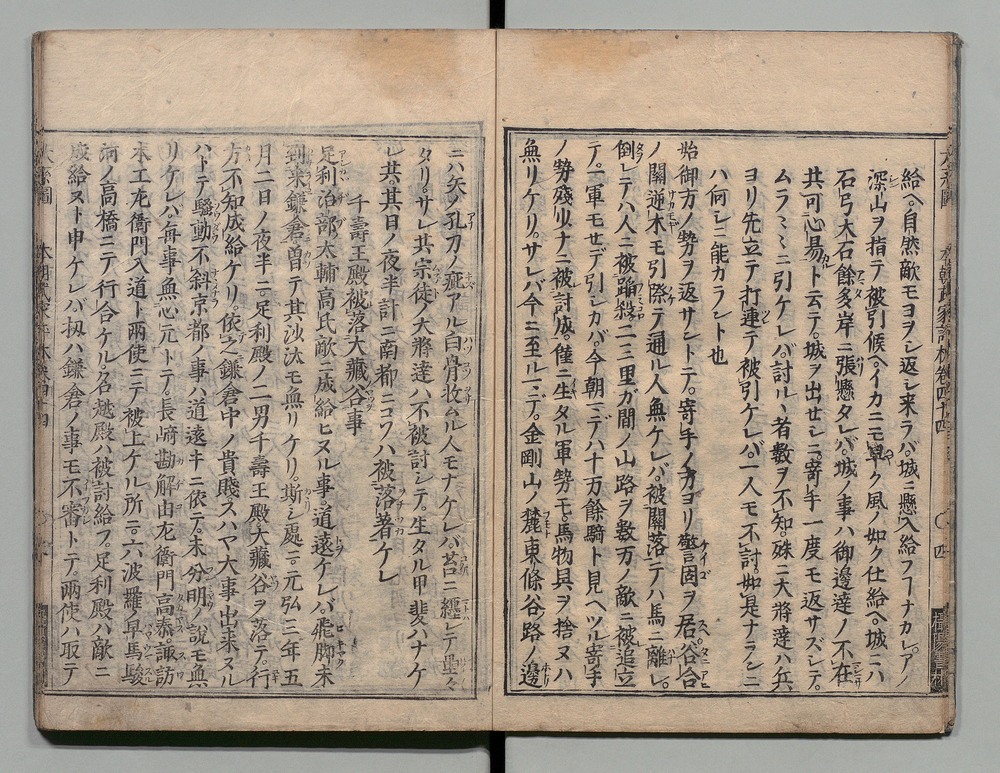 給ヘ。自然敵モヨヲシ返シ来ラバ。城ニ懸入給フ事ナカレ。アノ
深山ヲ指テ被引候ヘ。イカニモ早ク風ノ如ク仕給ヘ。城ニハ
石弓大石餘多岸ニ張懸タレバ。城ノ事ハ御邊達ノ不在
共可心易ト云テ。城ヲ出セシニ寄手一度モ返サズシテ。
ムラ〱ニ引ケレバ。討ルヽ者數ヲ不知。殊ニ大將達ハ兵
ヨリ先立テ打連テ被引ケレバ。一人モ不討。如是ナランニ
ハ何レニ能カラント也
始御方ノ勢ヲ返サントテ。寄手ノ方ヨリ警固ヲ居。谷合
ノ關逆木モ引除テ通ル人無ケレバ。被關落テハ馬ニ離レ。
倒レテハ人ニ被踏殺。二三里ガ間ノ山路ヲ數万ノ敵ニ被追立
テ。一軍モセデ引シカバ。今朝マデハ十万餘騎ト見ヘツル寄手
ノ勢殘少ナニ被討成。僅ニ生タル軍勢モ。馬物具ヲ捨ヌハ
無リケリ。サレバ今ニ至ルマデ。金剛山ノ麓東條谷ノ路ノ邊
ニハ矢ノ孔刀ノ疵アル白骨收ムル人モナケレバ苔ニ纏レテ壘々
タリ。サレ共宗徒ノ大將達ハ不被討シテ。生タル甲斐ハナケ
レ共。其日ノ夜半計ニ南都ニコソハ被落著ケレ
千壽王殿被落大藏谷事
足利治部太輔高氏敵ニ成給ヒヌル事。道遠ケレバ飛脚未
到来鎌倉曽テ其沙汰モ無リケリ。斯シ處ニ元弘三年五
月二日ノ夜半ニ。足利殿ノ二男千壽王殿。大藏谷ヲ落テ。行
方不知成給ケリ。依之鎌倉中ノ貴賤。スハヤ大事出来ヌル
ハトテ騒動不斜京都ノ事ハ道遠キニ依テ。未分明ノ説モ無
リケレバ。毎事無心元トテ。長﨑勘解由左衛門高泰諏訪
木工左衛門入道ト兩使ニテ被上ケル所ニ。六波羅早馬駿
河ノ高橋ニテ行合ケル。名越殿ハ被討給フ。足利殿ハ敵ニ
成給ヌト申ケレバ。扨ハ鎌倉ノ事モ不審トテ。兩使ハ取テ